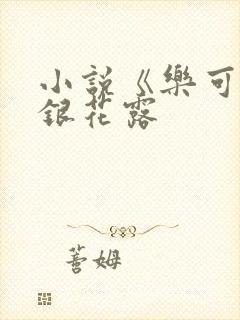 小說《樂可
銀花露
蓍姆